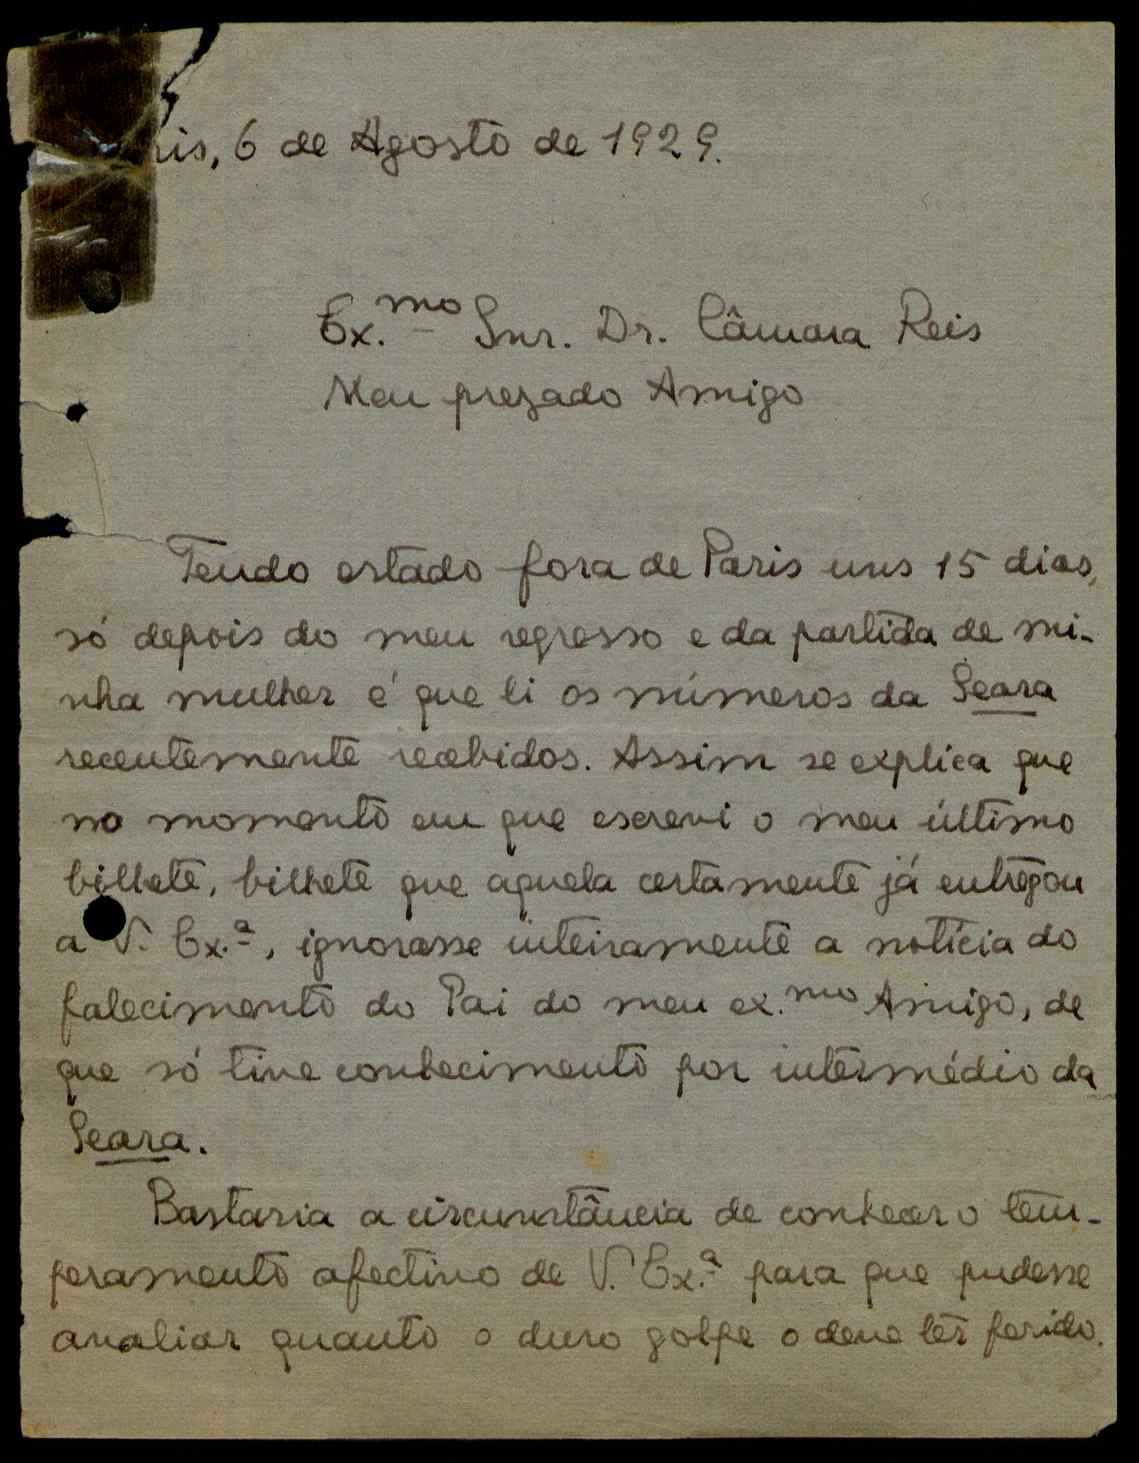 ris, 6 de Agosto de 1929.
Ex.mo Snr. Dr. Câmara Reis
Meu prezado Amigo
Tendo estado fora de Paris uns 15 dias,
só depois do meu regresso e da partida de mi-
nha mulher é que li os números da Seara
recentemente recebidos. Assim se explica que
no momento em que escrevi o meu último
bilhete, bilhete que aquela certamente já entregou
a V. Ex.ª, ignorasse inteiramente a notícia do
falecimento do Pai do meu ex.mo Amigo, de
que só tive conhecimento por intermédio da
Seara.
Bastaria a circunstância de conhecer o tem-
peramento afectivo de V. Ex.ª para que pudesse
avaliar quanto o duro golpe o deve ter ferido.